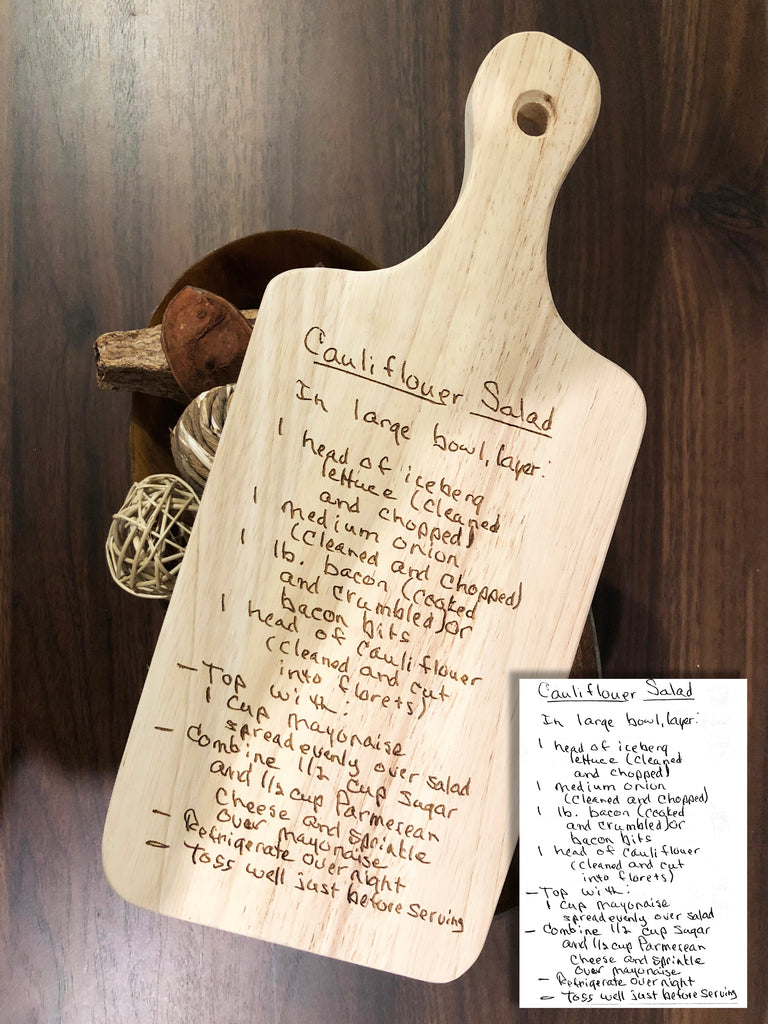 Cauliflower Salad
In large bowl, layer:
1 head of iceberg
lettuce (cleaned
and chopped)
1 medium onion
(cleaned and chopped)
1 lb. bacon (cooked
and crumbled) or
bacon bits
1 head of cauliflower
(cleaned and cut
into florets)
- Top with:
1 cup mayonaise
spread evenly over salad
- Combine 1/2 cup sugar
and 1/2 cup Parmesean
cheese and sprinkle
over mayonaise
- Refrigerate over night
- Toss well just before serving
Cauliflower Salad
In large bowl, layer:
1 head of iceberg
lettuce (cleaned
and chopped)
1 medium onion
(cleaned and chopped)
1 lb. bacon (cooked
and crumbled) or
bacon bits
1 head of cauliflower
(cleaned and cut
into florets)
- Top with:
1 cup mayonaise
spread evenly over salad
- Combine 1/2 cup sugar
and 1/2 cup Parmesean
cheese and sprinkle
over mayonaise
- Refrigerate over night
- Toss well just before serving